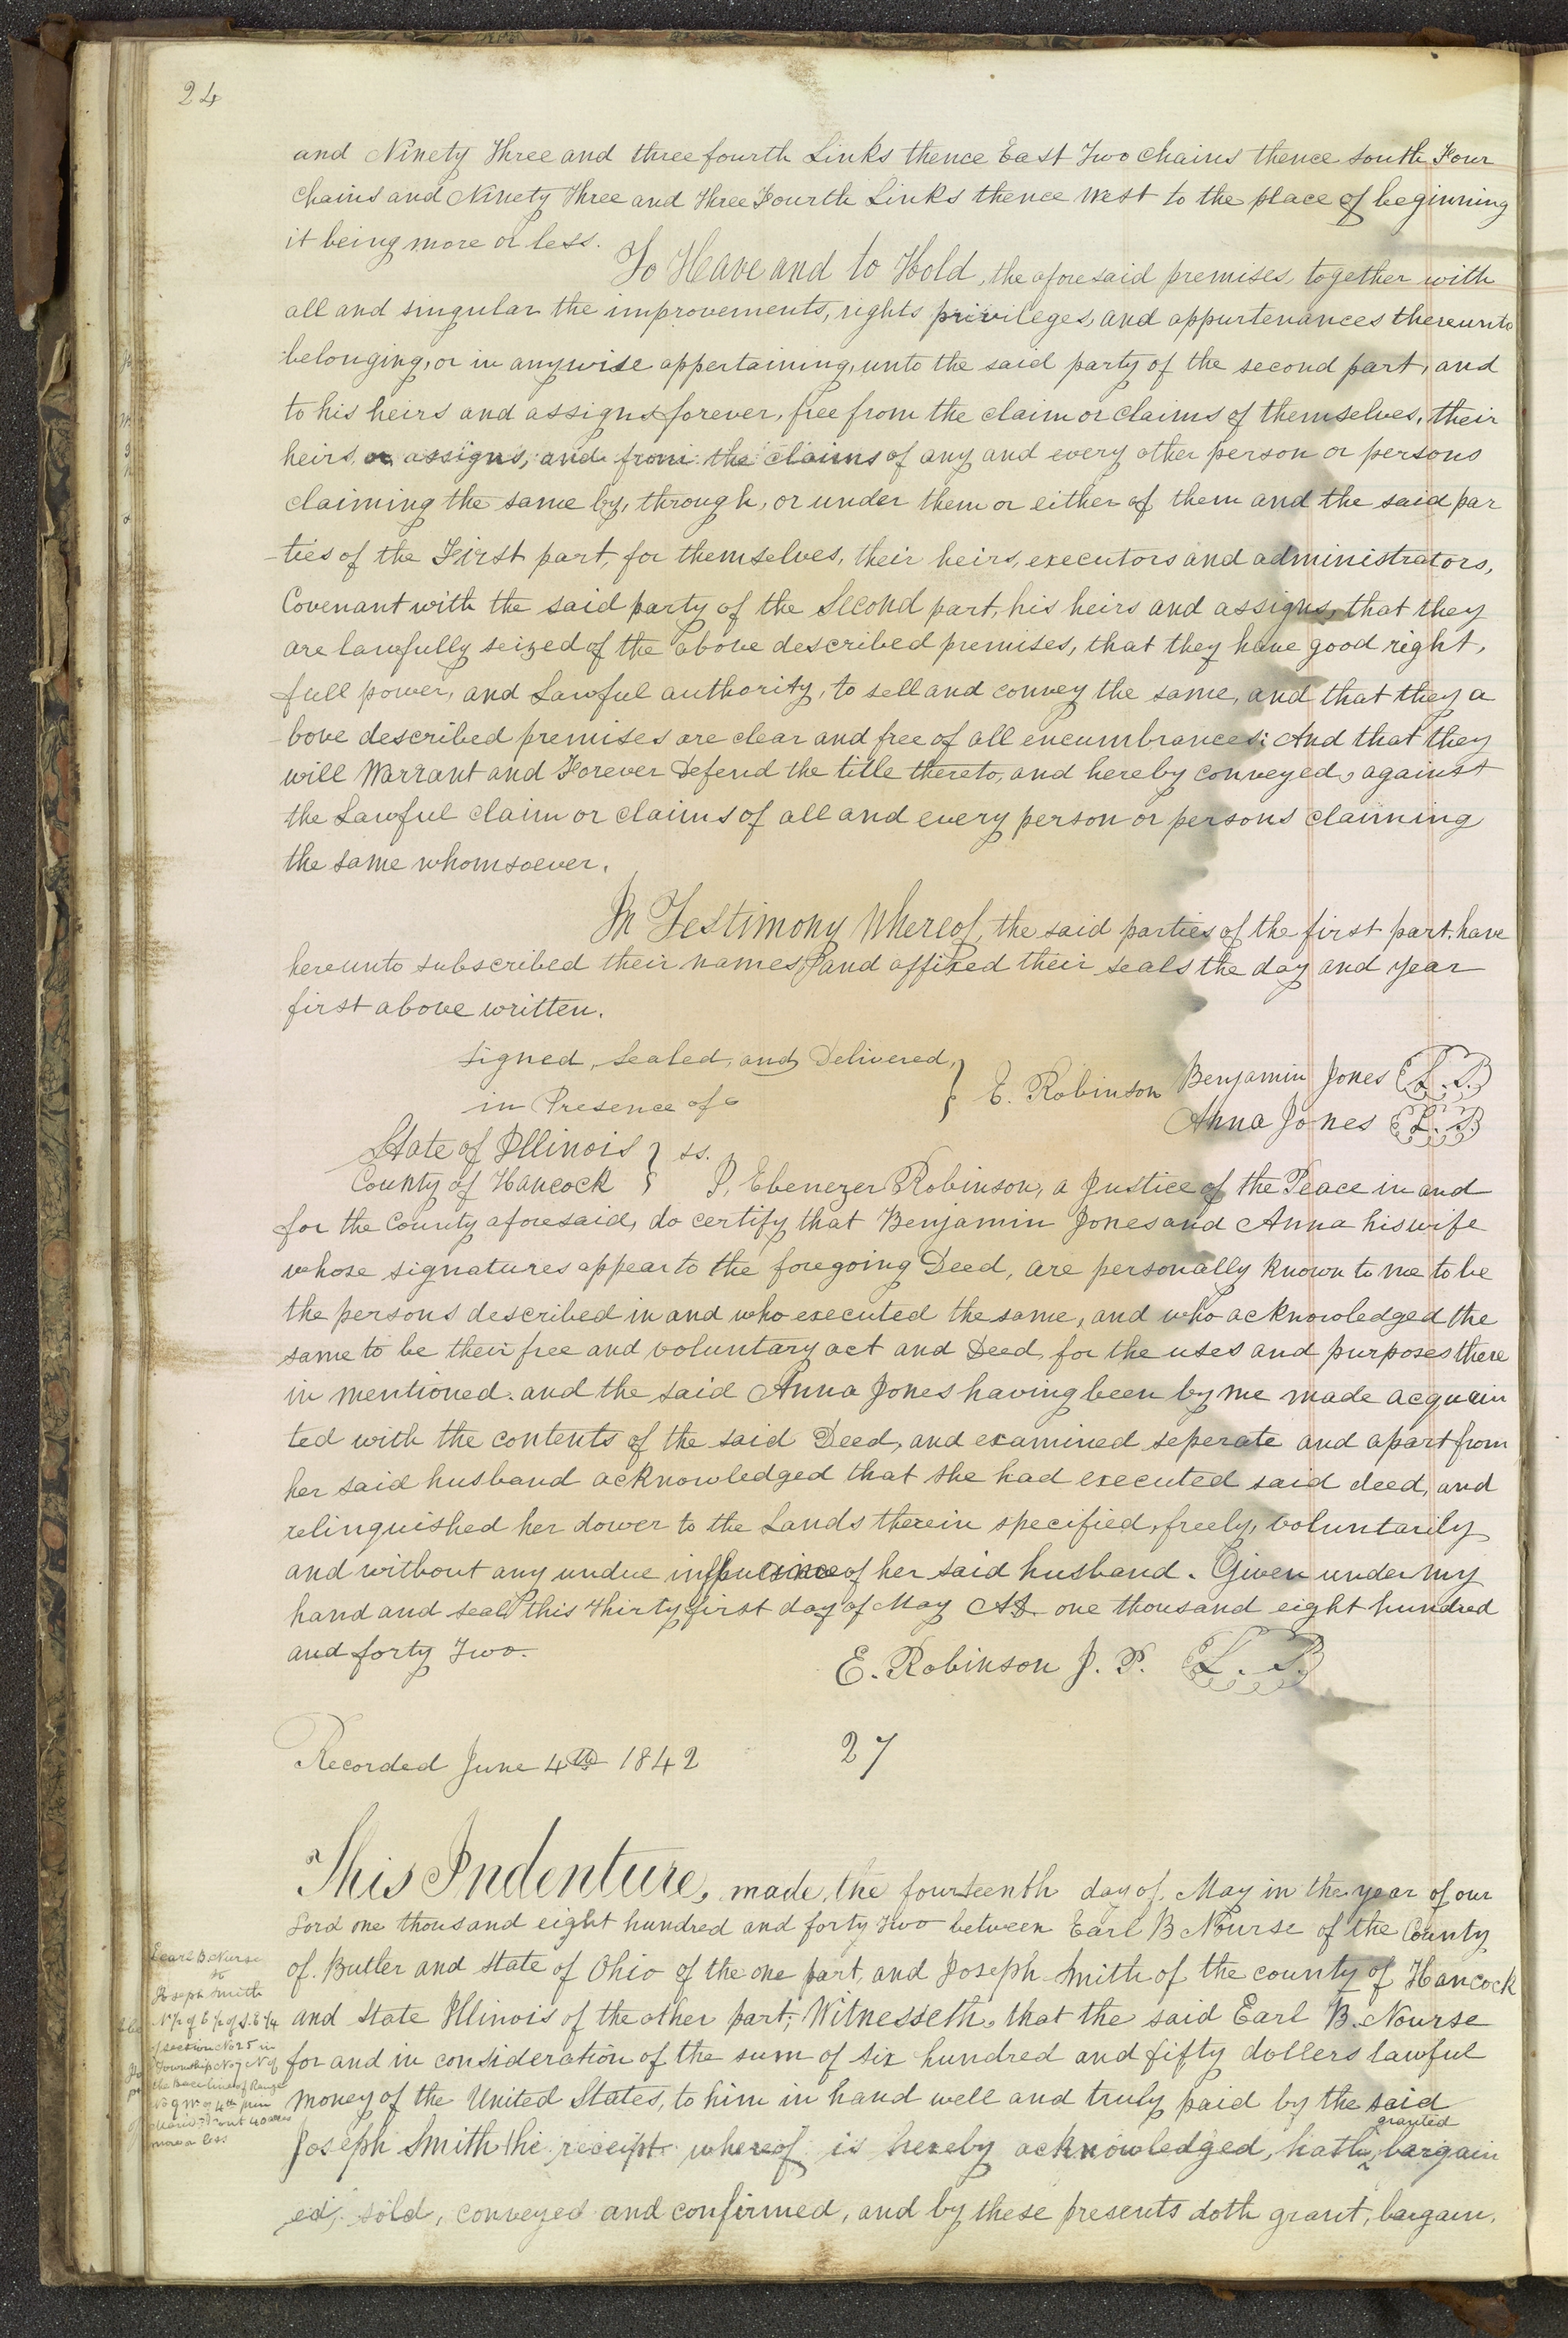 24
and Ninety Three and three fourth Links thence East Two Chains thence south Four
Chains and Ninety Three and Three Fourth Links thence West to the place of beginning
it being more or less.
To Have and to Hold, the aforesaid premises, together with
all and singular the improvements, rights privileges, and appurtenances thereunto
belonging, or in anywise appertaining, unto the said party of the second part, and
to his heirs and assigns forever, free from the claim or claims of themselves, their
heirs, or assigns, and from the claims of any and every other person or persons
claiming the same by, through, or under them or either of them and the said par
-ties of the First part, for themselves, their heirs, executors and administrators,
Covenant with the said party of the Second part, his heirs and assigns, that they
are lawfully seized of the above described premises, that they have good right,
full power, and Lawful authority, to sell and convey the same, and that they a
-bove described premises are clear and free of all encumbrances: And that they
will Warrant and Forever Defend the title thereto, and hereby conveyed, against
the Lawful claim or claims of all and every person or persons claiming
the same whomsoever.
In Testimony Whereof, the said parties of the first part, have
hereunto subscribed their names, and affixed their seals the day and year
first above written.
Signed, Sealed, and Delivered,
in Presence of
} E. Robinson
Benjamin Jones L.S.
Anna Jones L.S.
State of Illinois } ss.
County of Hancock } I, Ebenezer Robinson, a Justice of the Peace in and
for the County aforesaid, do certify that Benjamin Jones and Anna his wife
whose signatures appear to the foregoing Deed, are personally known to me to be
the persons described in and who executed the same, and who acknowledged the
same to be their free and voluntary act and Deed, for the uses and purposes there
in mentioned. and the said Anna Jones having been by me made acquain
ted with the contents of the said Deed, and examined seperate and apart from
her said husband acknowledged that she had executed said deed, and
relinquished her dower to the Lands therein specified, freely, voluntarily
and without any undue influence of her said husband. Given under my
hand and seal this thirty first day of May AD. one thousand eight hundred
and forty Two.
E. Robinson J. P. L.S.
Recorded June 4th 1842
27
This Indenture, made, the fourteenth day of, May in the year of our
Lord one thousand eight hundred and forty two between Earl B Nourse of the County
of. Butler and state of Ohio of the one part, and Joseph Smith of the county of Hancock
and state Illinois of the other part; Witnesseth, that the said Earl B. Nourse
for and in consideration of the sum of six hundred and fifty dollers lawful
money of the United States, to him in hand well and truly paid by the said
Joseph Smith the receipt whereof is hereby acknowledged, hath, granted bargain
ed, sold, conveyed and confirmed, and by these presents doth grant, bargain,
Earl B Nurse
to
Joseph Smith
of section No 25 in
Township No 7 N of
the Base line of Range
No 9 W of 4th
40 acres
more or less